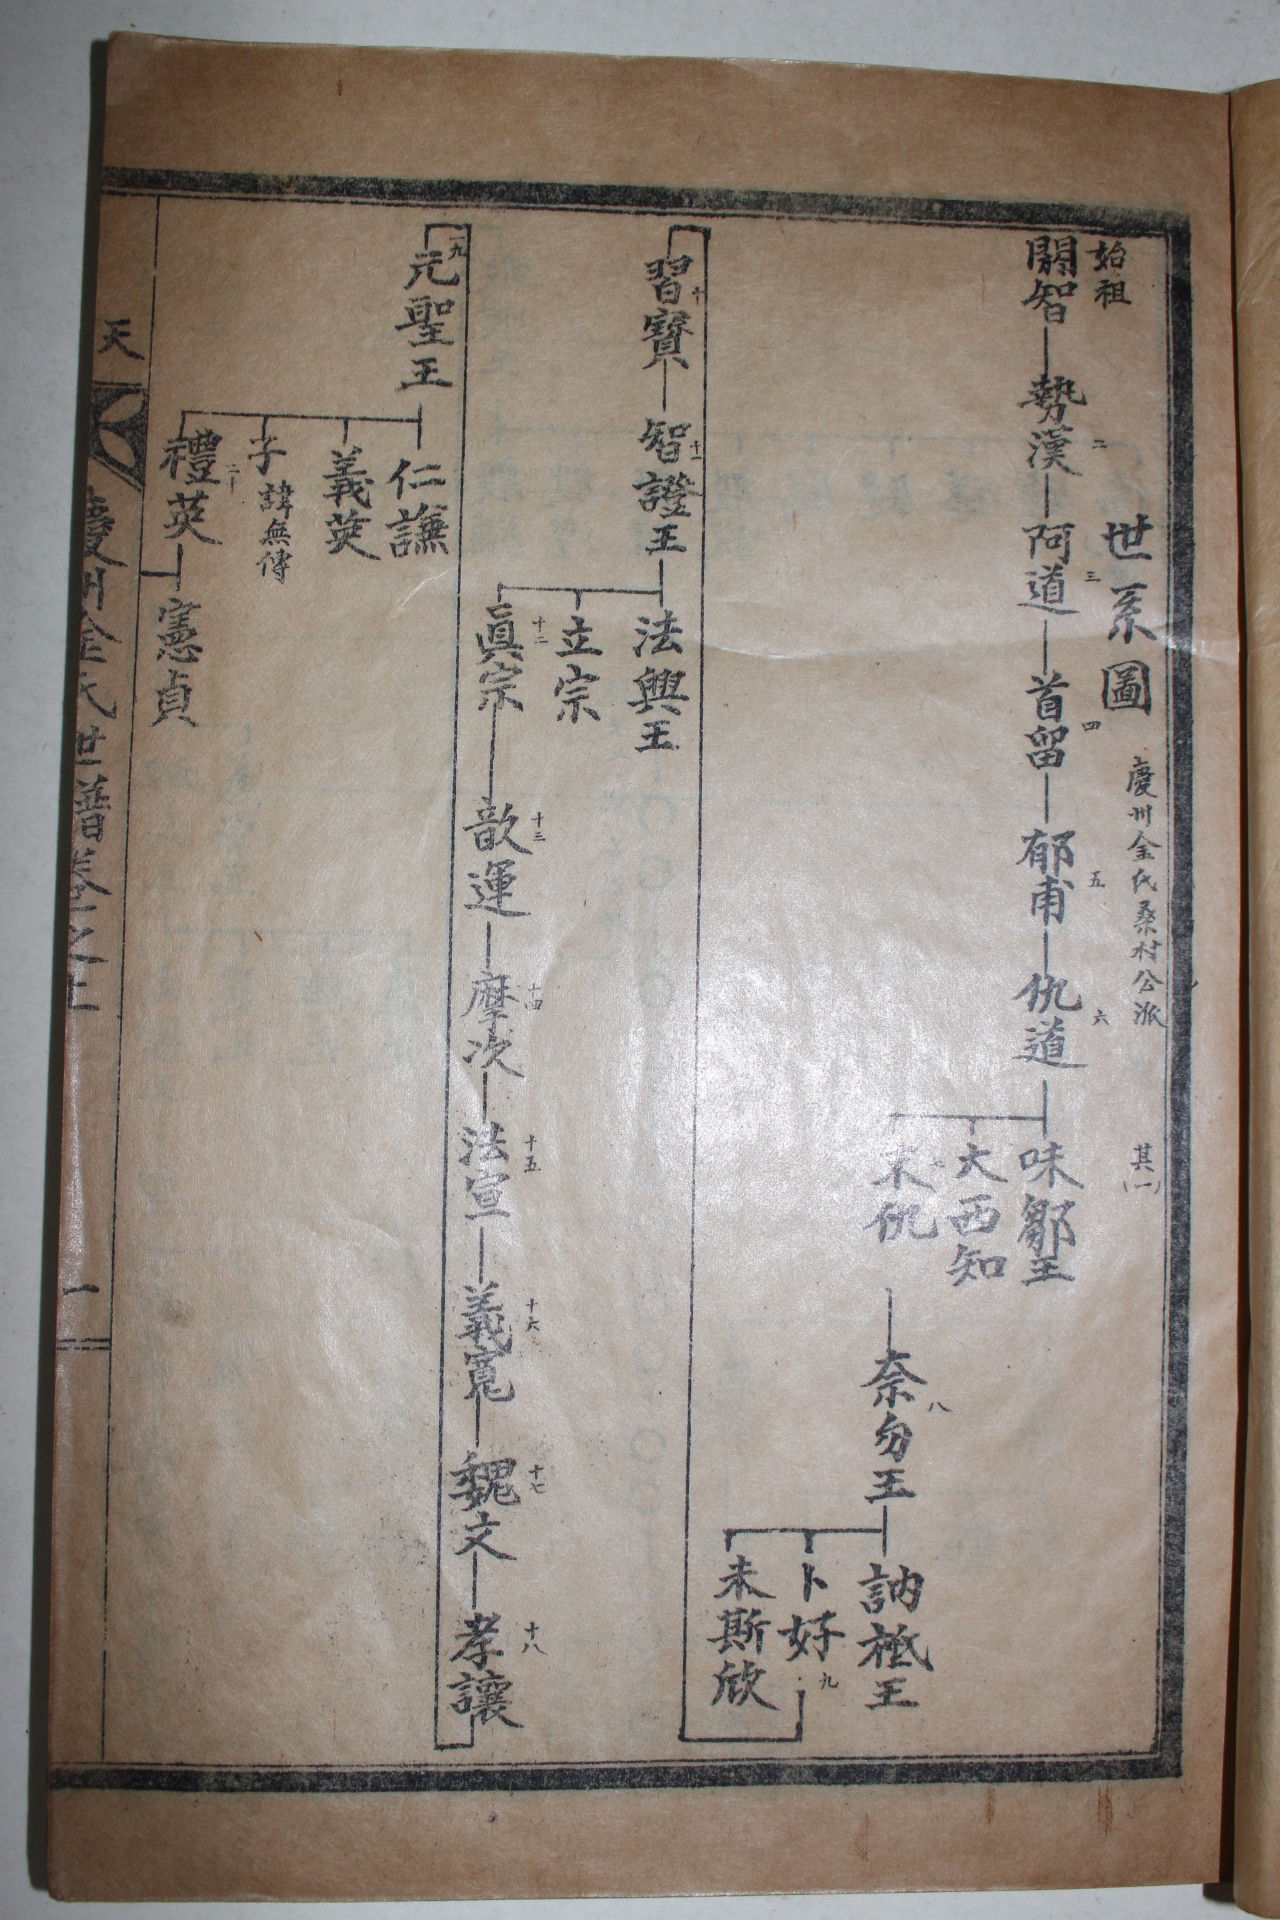 世系圖 慶州金氏桑村公派 其(一)
始祖
閼智
勢漢 二
阿道 三
首留 四
郁甫 五
仇道 六
味鄒王
大西知
末仇 七
奈勿王 八
訥祗王
卜好 九
未斯欣
習寶 十
智證王 十一
法興王
立宗
眞宗 十二
歆運 十三
摩次 十四
法宣 十五
義寬 十六
魏文 十七
孝讓 十八
元聖王 十九
仁謙
義英
子 諱無傳
禮英 二十
憲貞
天
慶州金氏世譜卷之上
一